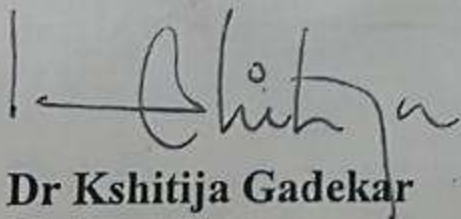 Kshitija
Dr Kshitija Gadekar